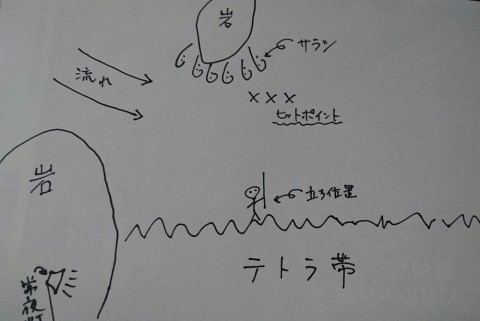 岩
サラシ
流れ
×××
ヒットポイント
岩
立ち位置
テトラ帯
常夜灯